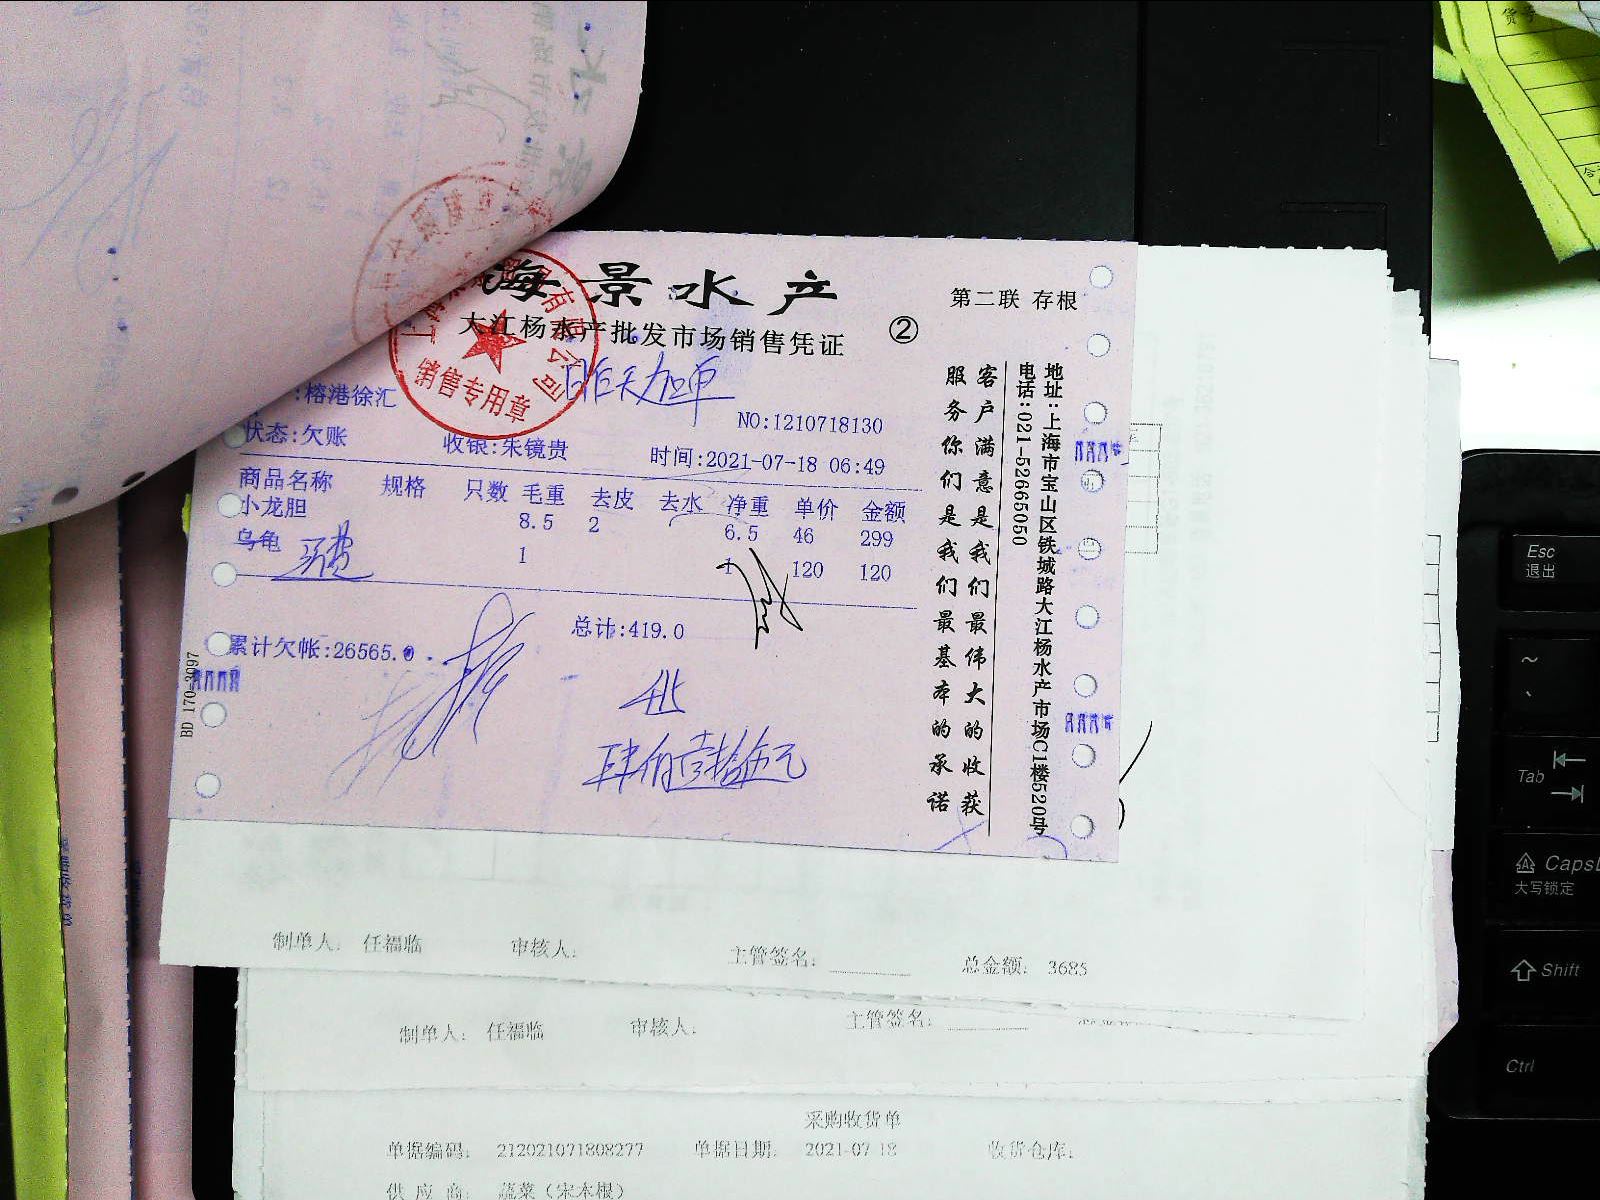 海景水产
大江杨水产批发市场销售凭证
②
第二联 存根
昨天加单
:榕港徐汇
NO:1210718130
状态:欠账
收银:朱镜贵
时间:2021-07-18 06:49
商品名称 规格 只数 毛重 去皮 去水 净重 单价 金额
小龙胆 8.5 2 6.5 46 299
乌龟 1 1 120 120
总计:419.0
累计欠帐:26565.0
BD 170-3097
客户满意是我们最伟大的收获
服务你们是我们最基本的承诺
地址:上海市宝山区铁城路大江杨水产市场C1楼520号
电话:021-52665050
有限公司
销售专用章
制单人: 任福临 审核人: 主管签名: 总金额: 3685
制单人: 任福临 审核人: 主管签名:
采购收货单
单据编码: 212021071808277 单据日期: 2021-07-18 收货仓库:
供应商: 蔬菜(宋本根)
Esc
退出
~
Tab
大写锁定
Shift
Ctrl